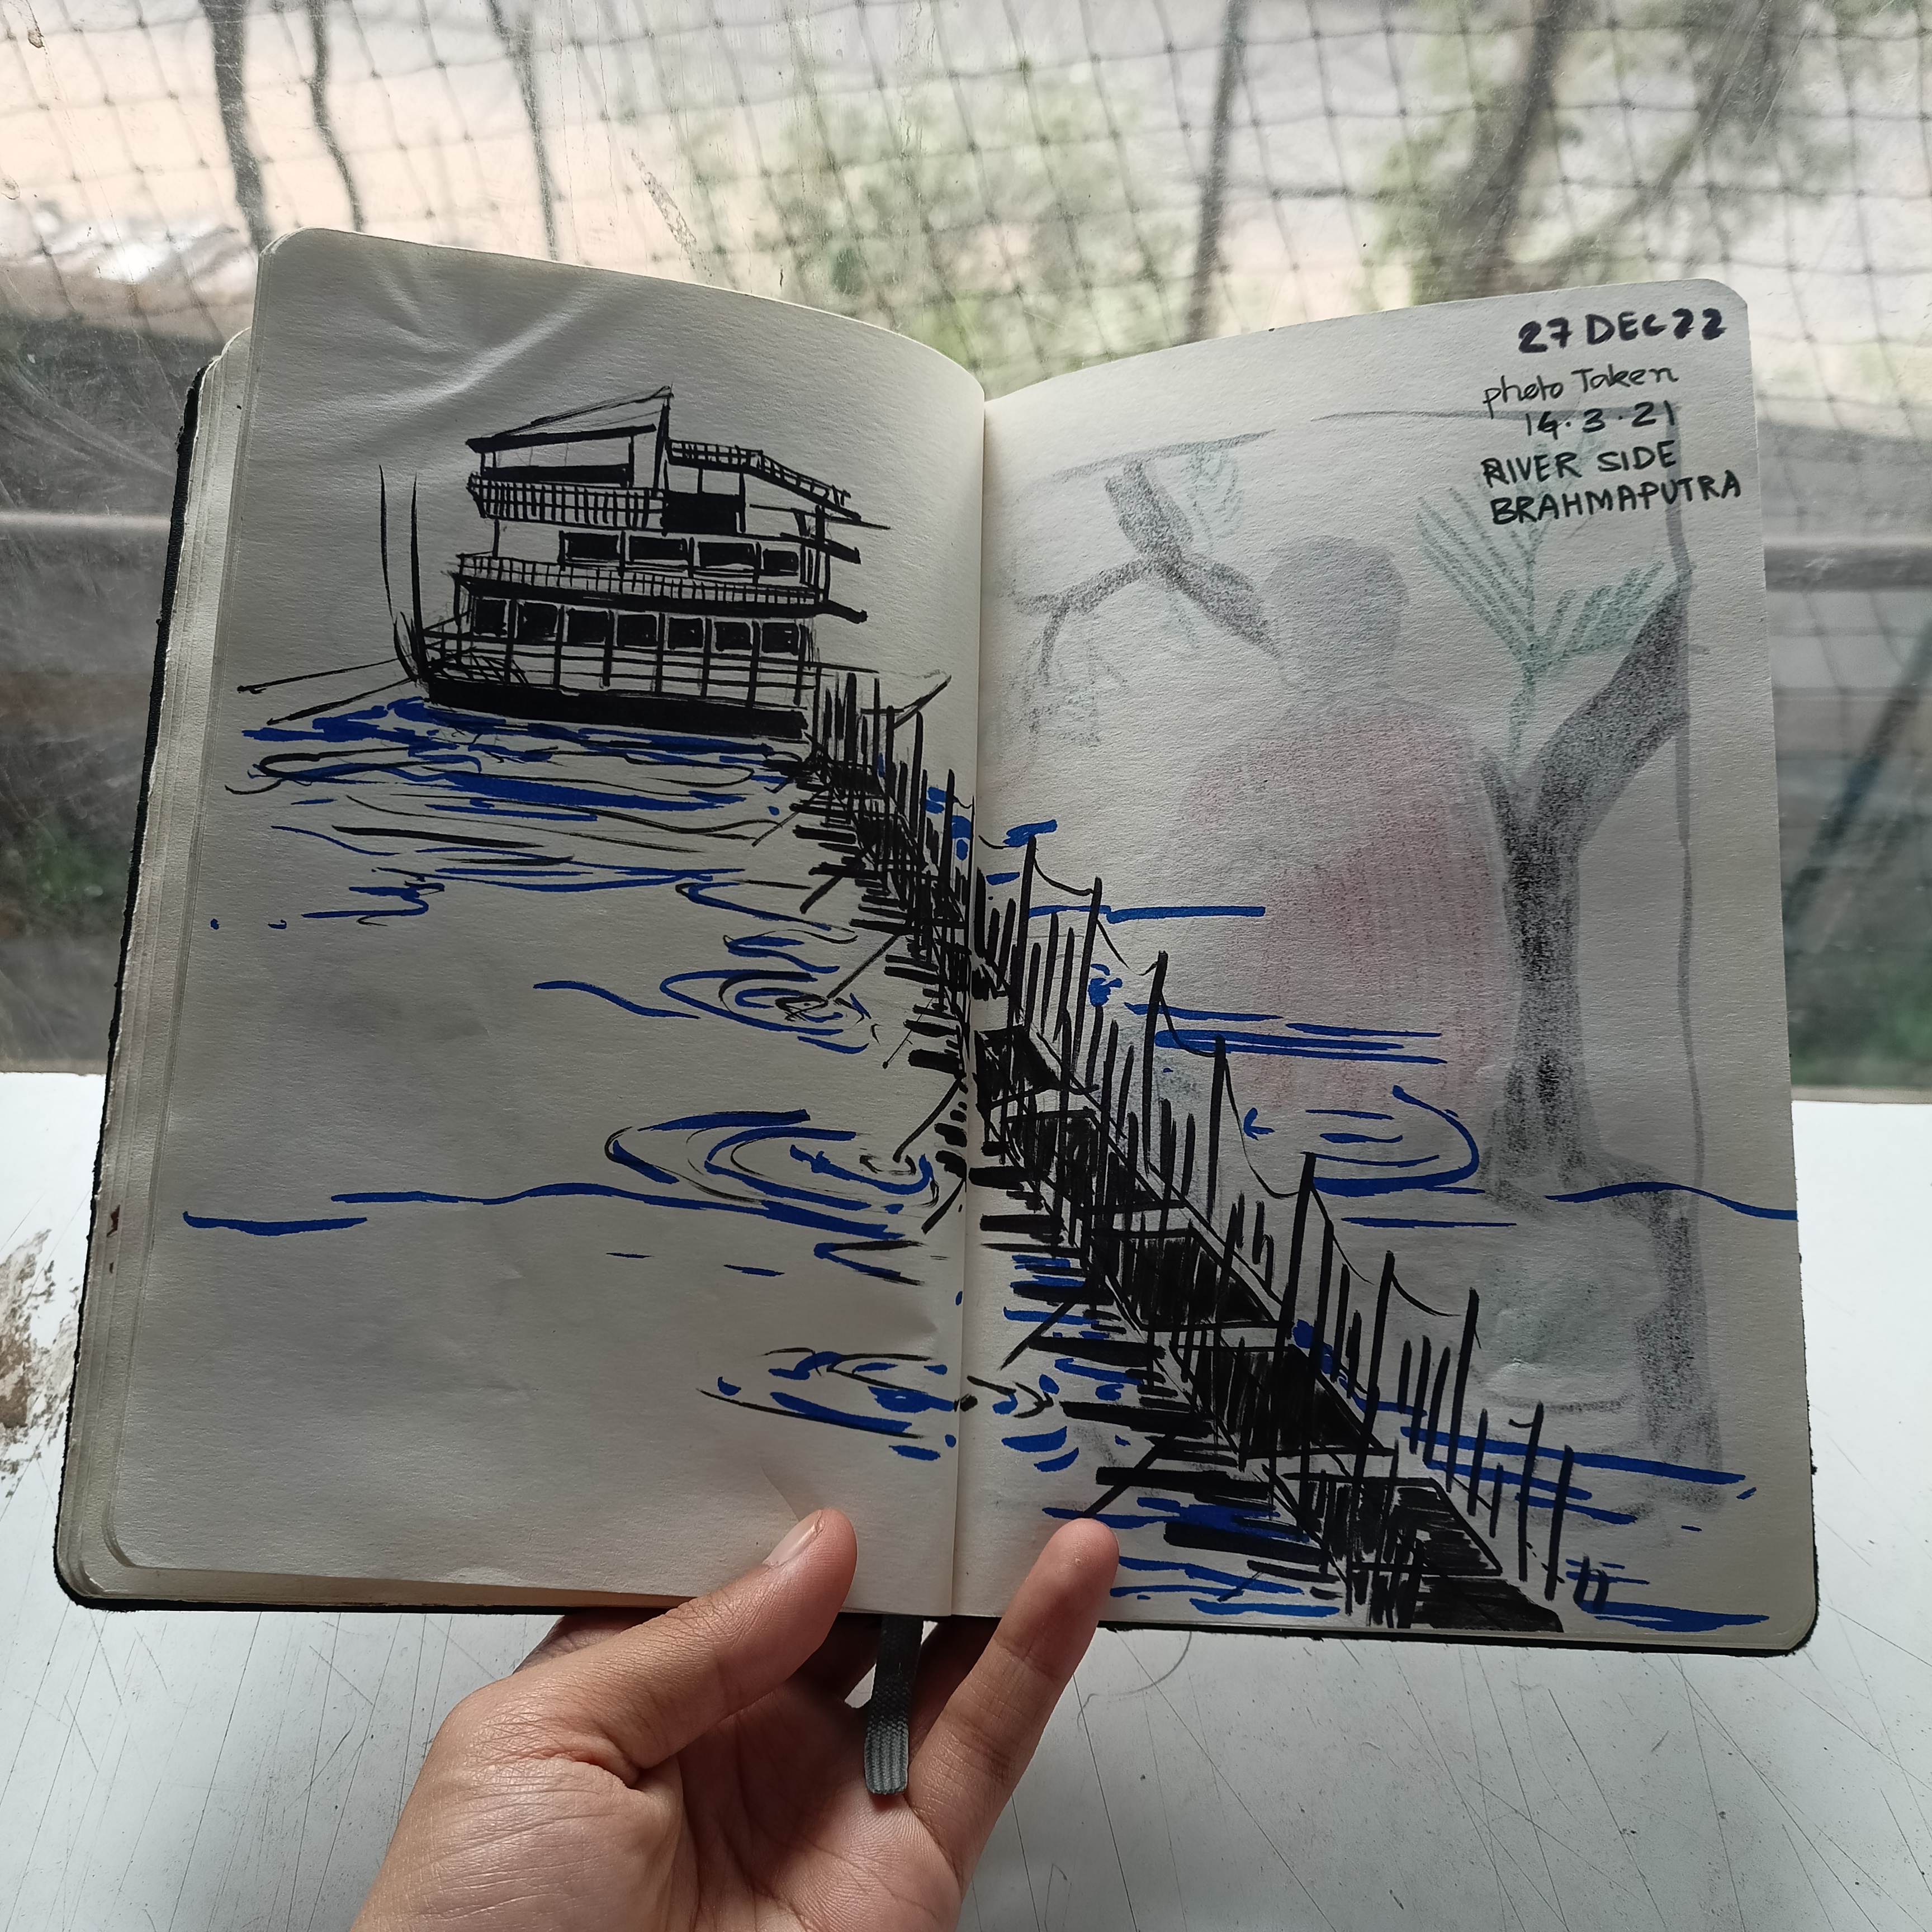 27 DEC 22
photo Taken
14.3.21
RIVER SIDE
BRAHMAPUTRA